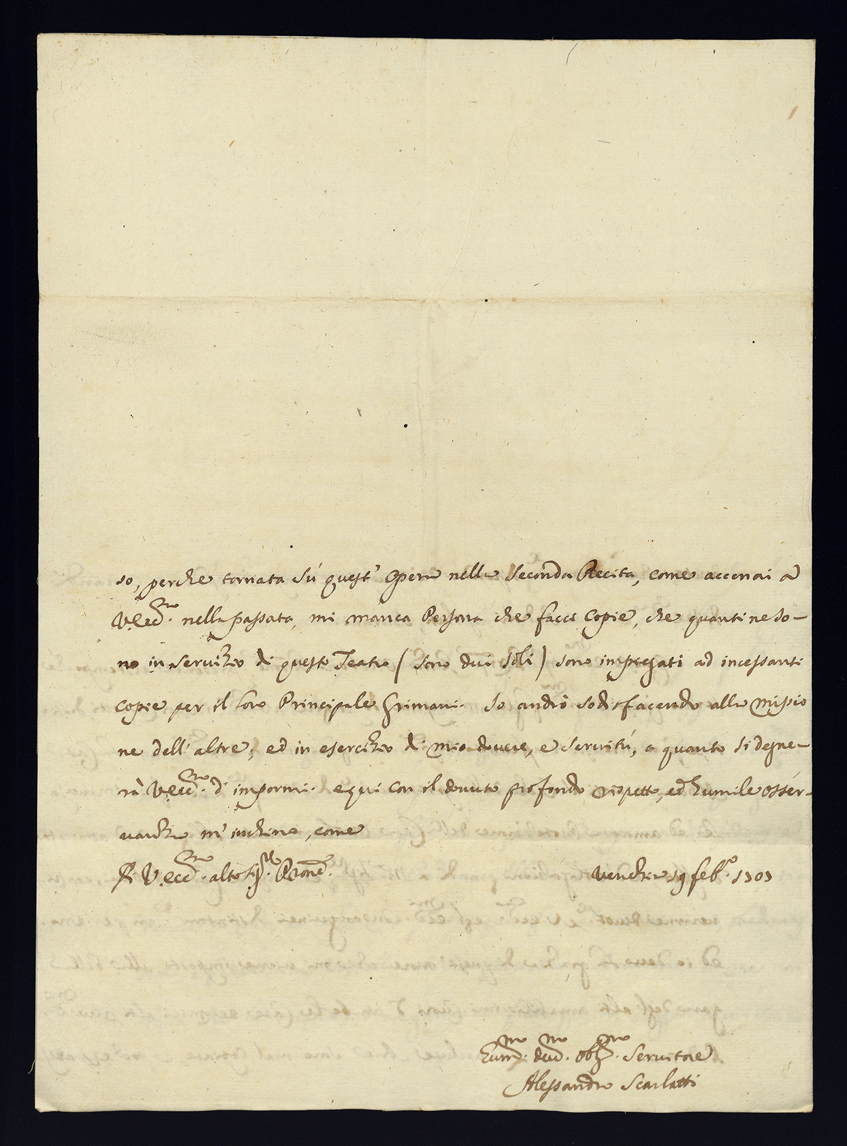 so, perche tornata sù quest' Opera nella Seconda Recita, come accennai à
V. ecc.ª nella passata, mi manca Persona che facci Copie, che quanti ne so-
no in servizio di questo Teatro (sono dui soli) sono impiegati ad incessanti
Copie per il loro Principale Grimani. Io andrò sodisfacendo alla missio
ne dell'altre, ed in esercizio di mio dovere, e servitù, a quanto si degne-
rà V. ecc.ª d'impormi. e qui con il dovuto profondo rispetto, ed humile osser-
vanza m'inchino, come
Di V. ecc.ª alto Sig.r Prone.
Venezia 19 feb.º 1707
Hum.mo dev.mo obl.mo Servitore
Alessandro Scarlatti